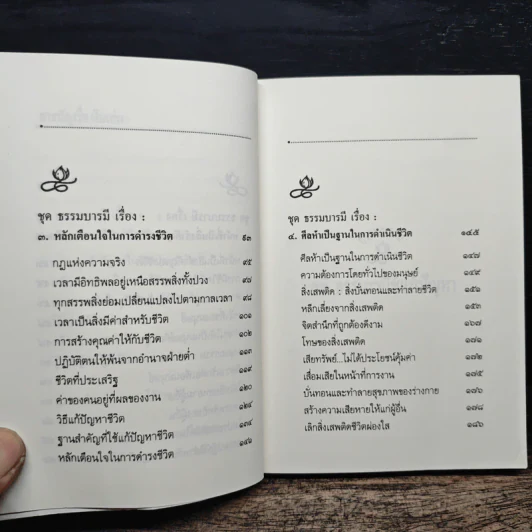 ชุด ธรรมบารมี เรื่อง :
๓. หลักเตือนใจในการดำรงชีวิต ๙๓
กฎแห่งความจริง ๙๕
เวลามีอิทธิพลอยู่เหนือสรรพสิ่งทั้งปวง ๙๘
ทุกสรรพสิ่งย่อมเปลี่ยนแปลงไปตามกาลเวลา ๙๘
เวลาเป็นสิ่งมีค่าสำหรับชีวิต ๑๐๑
การสร้างคุณค่าให้กับชีวิต ๑๐๘
ปฏิบัติตนให้พ้นจากอำนาจฝ่ายต่ำ ๑๑๓
ชีวิตที่ประเสริฐ ๑๑๙
ค่าของคนอยู่ที่ผลของงาน ๑๒๐
วิธีแก้ปัญหาชีวิต ๑๒๔
ฐานสำคัญที่ใช้แก้ปัญหาชีวิต ๑๓๔
หลักเตือนใจในการดำรงชีวิต
ชุด ธรรมบารมี เรื่อง :
๔. ศีลห้าเป็นฐานในการดำเนินชีวิต ๑๔๕
ศีลห้าเป็นฐานในการดำเนินชีวิต ๑๔๗
ความต้องการโดยทั่วไปของมนุษย์ ๑๔๙
สิ่งเสพติด : สิ่งบั่นทอนและทำลายชีวิต ๑๕๑
หลีกเลี่ยงจากสิ่งเสพติด ๑๕๖
จิตสำนึกที่ถูกต้องดีงาม ๑๖๗
โทษของสิ่งเสพติด ๑๗๑
เสียทรัพย์...ไม่ได้ประโยชน์คุ้มค่า ๑๗๒
เสื่อมเสียในหน้าที่การงาน ๑๗๔
บั่นทอนและทำลายสุขภาพของร่างกาย ๑๗๖
สร้างความเสียหายให้แก่ผู้อื่น ๑๗๘
เลิกสิ่งเสพติดชีวิตผ่องใส ๑๘๖